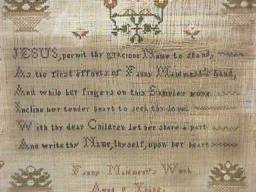 JESUS, permit thy gracious Name to stand,
As the first efforts of Fanny Maidment's hand,
And while her fingers on this Sampler move
Incline her tender heart to seek thy love
With thy dear Children let her share a part
And write thy Name, thyself, upon her heart
Fanny Maidment's Work
Aged